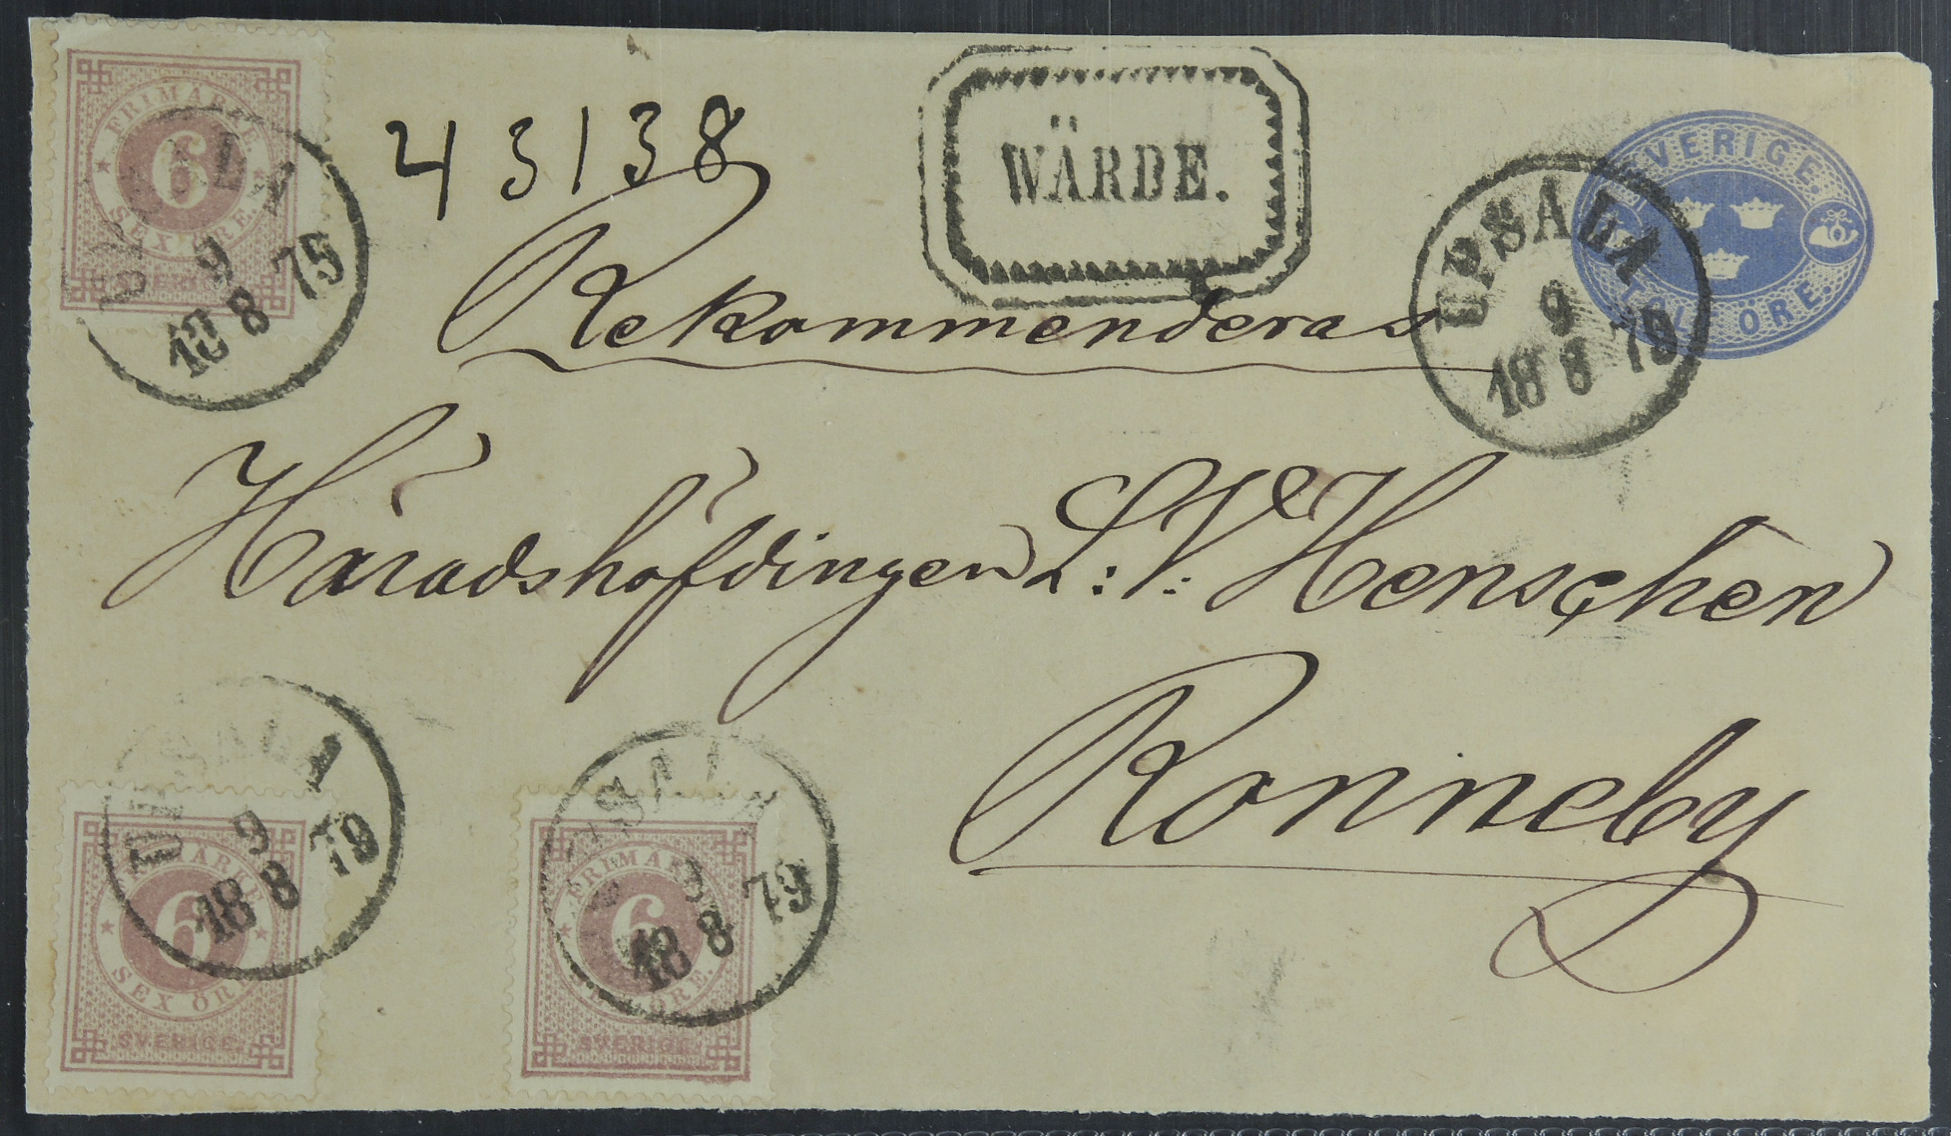 FRIMÄRKE
6
SEX ÖRE.
SVERIGE
UPSALA
9
18 8 79
43138
WÄRDE.
SVERIGE.
TOLF ÖRE.
UPSALA
9
18 8 79
Rekommenderas
Häradshöfdingen S: V: Henschen
Ronneby
UPSALA
9
18 8 79
FRIMÄRKE
6
SEX ÖRE.
SVERIGE.
UPSALA
9
18 8 79
FRIMÄRKE
6
SEX ÖRE.
SVERIGE.